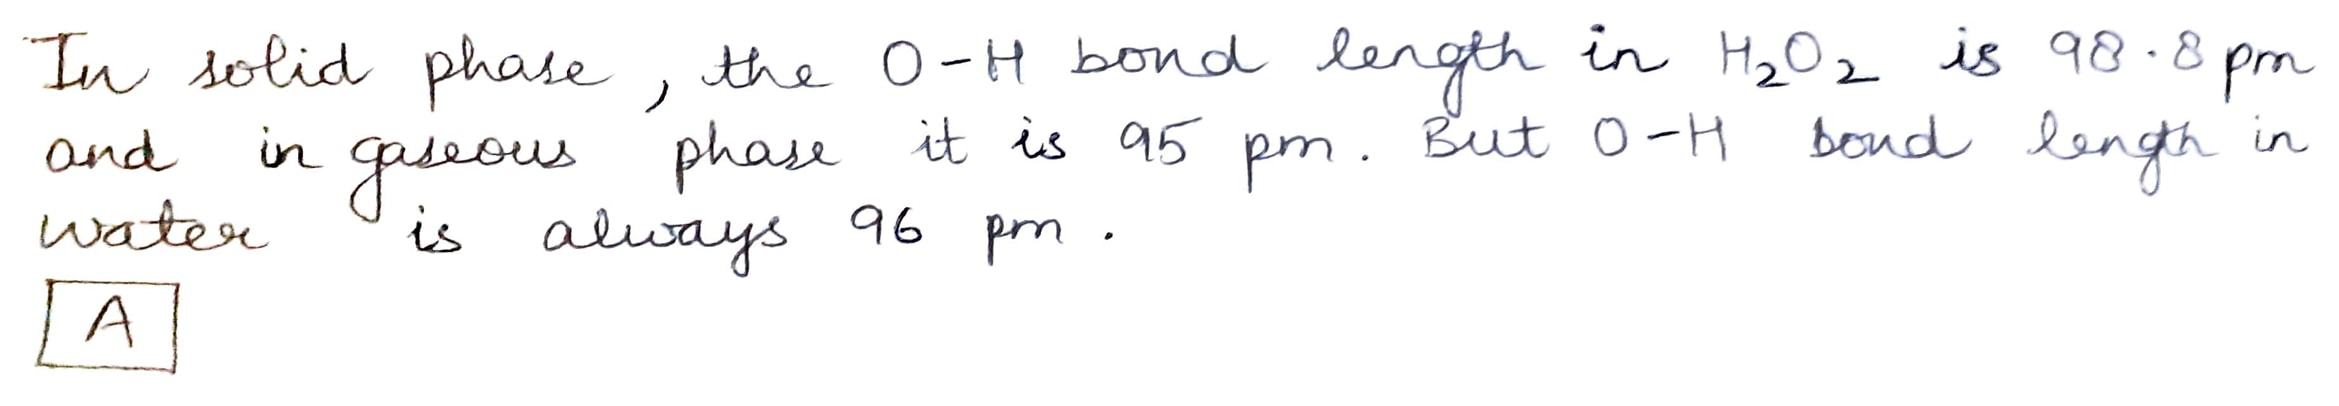 In solid phase, the O-H bond length in H₂O₂ is 98.8 pm
and in gaseous phase it is 95 pm. But O-H bond length in
water is always 96 pm.
A